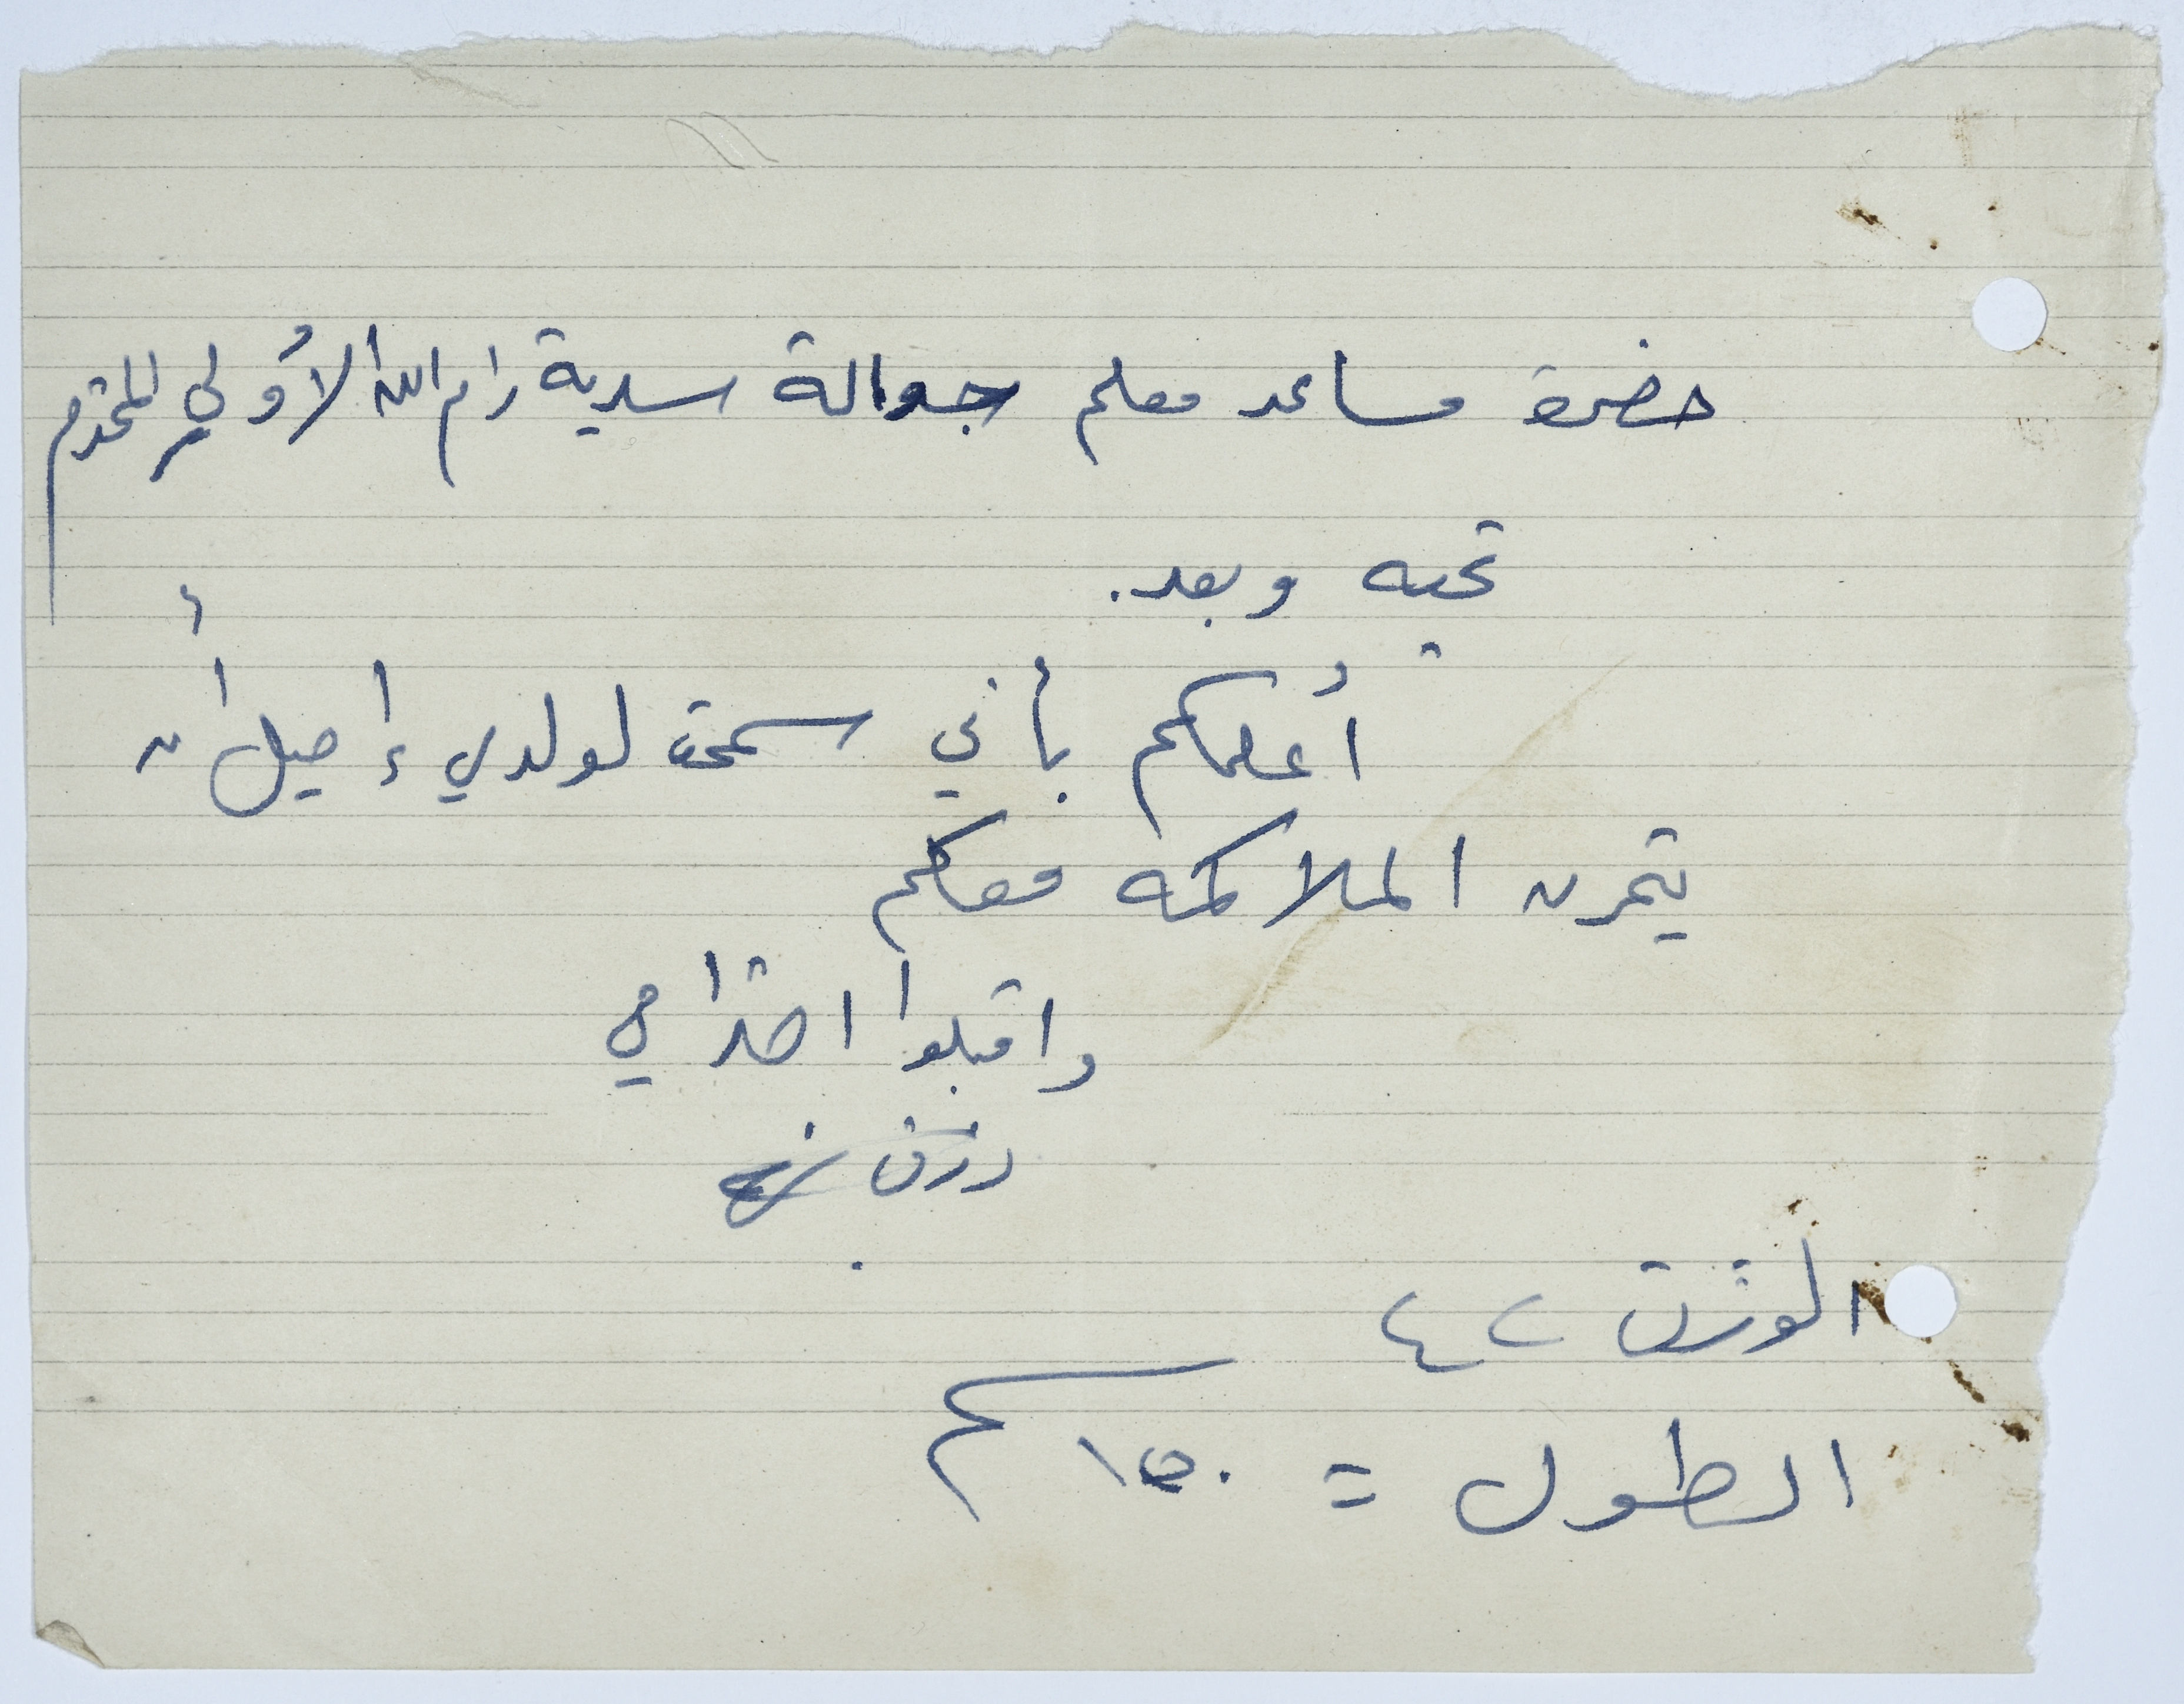 حضرة مساعد معلم جوالة سرية رام الله الأولى المحترم
تحيه وبعد.
أعلمكم بأني سمحت لولدي إميل أن
يتمرن الملاكمه معكم
واقبلوا احترامي
رزق
الوزن ٤٢
الطول = ١٥٠ سم